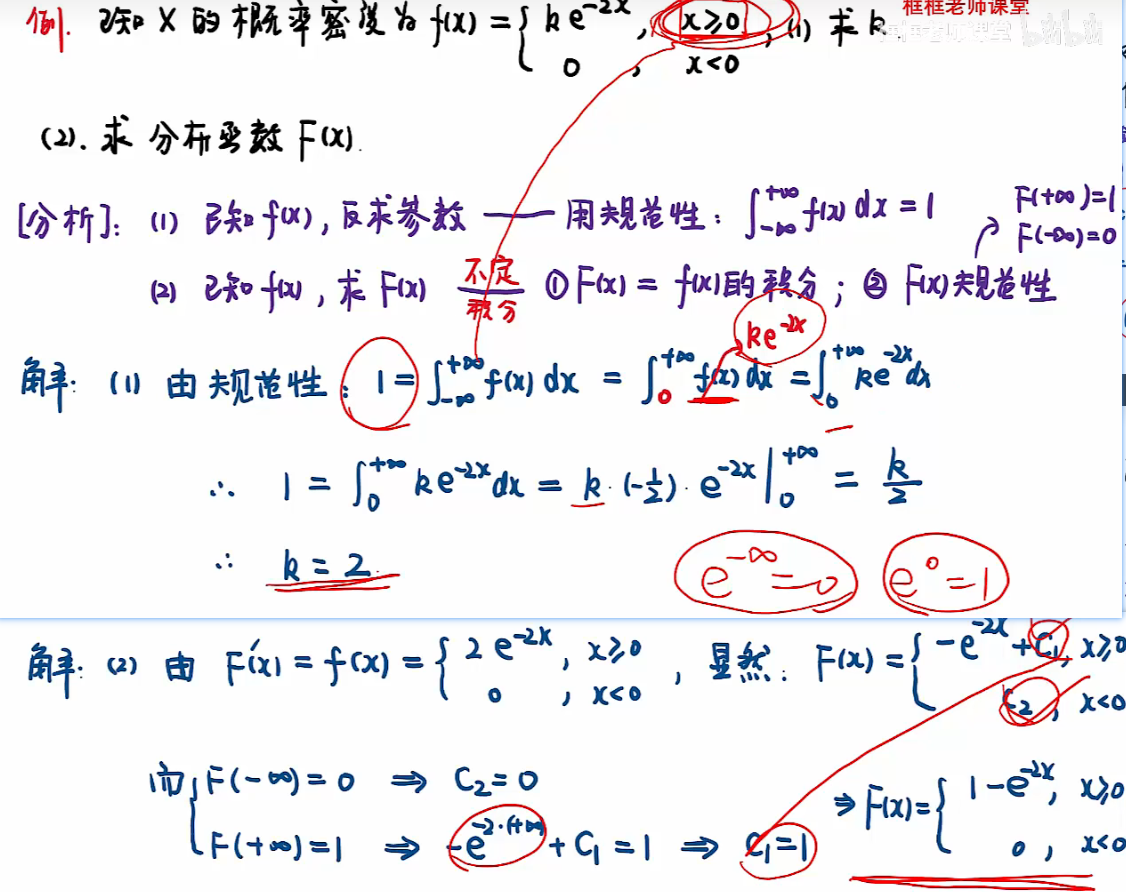 框框老师课堂
例. 已知 X 的概率密度为 f(x) = { ke^{-2x}, x≥0; 0, x<0 , (1) 求 k.
(2). 求 分布函数 F(x).
[分析]: (1) 已知 f(x), 反求参数 —— 用规范性: ∫_{-∞}^{+∞} f(x) dx = 1
F(+∞)=1
F(-∞)=0
(2) 已知 f(x), 求 F(x) 不定积分 ① F(x) = f(x)的积分; ② F(x)规范性
ke^{-2x}
解: (1) 由规范性: 1 = ∫_{-∞}^{+∞} f(x) dx = ∫_{0}^{+∞} f(x) dx = ∫_{0}^{+∞} ke^{-2x} dx
∴ 1 = ∫_{0}^{+∞} ke^{-2x} dx = k·(-1/2)·e^{-2x} |_{0}^{+∞} = k/2
∴ k = 2.
e^{-∞}=0 e^{0}=1
解: (2) 由 F'(x) = f(x) = { 2e^{-2x}, x≥0; 0, x<0 , 显然: F(x) = { -e^{-2x}+C₁, x≥0; C₂, x<0
而 { F(-∞)=0 ⇒ C₂=0
F(+∞)=1 ⇒ -e^{-2·(+∞)} + C₁ = 1 ⇒ C₁=1
⇒ F(x) = { 1-e^{-2x}, x≥0; 0, x<0